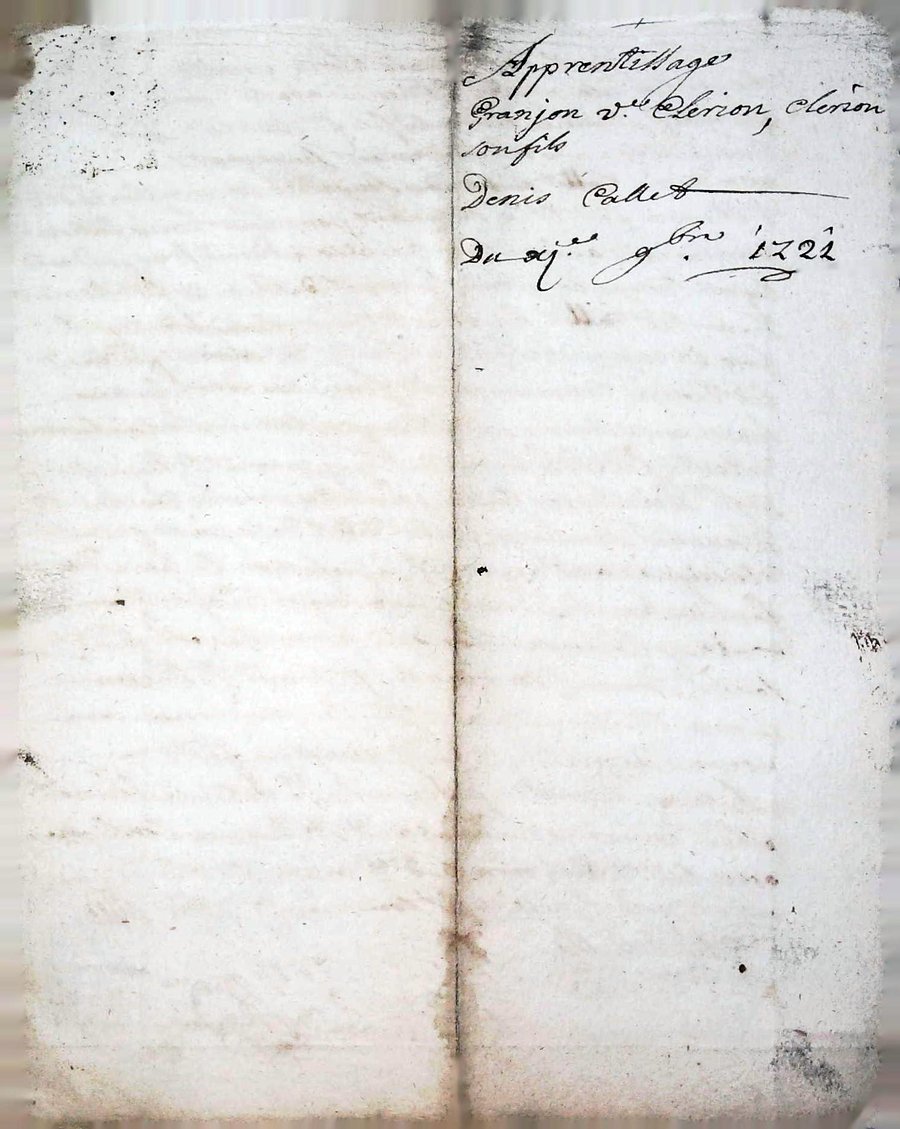 Apprentissage
Granjon v.e Clerion, Clerion
son fils
Denis Callet
Du xj.e 9.bre 1722